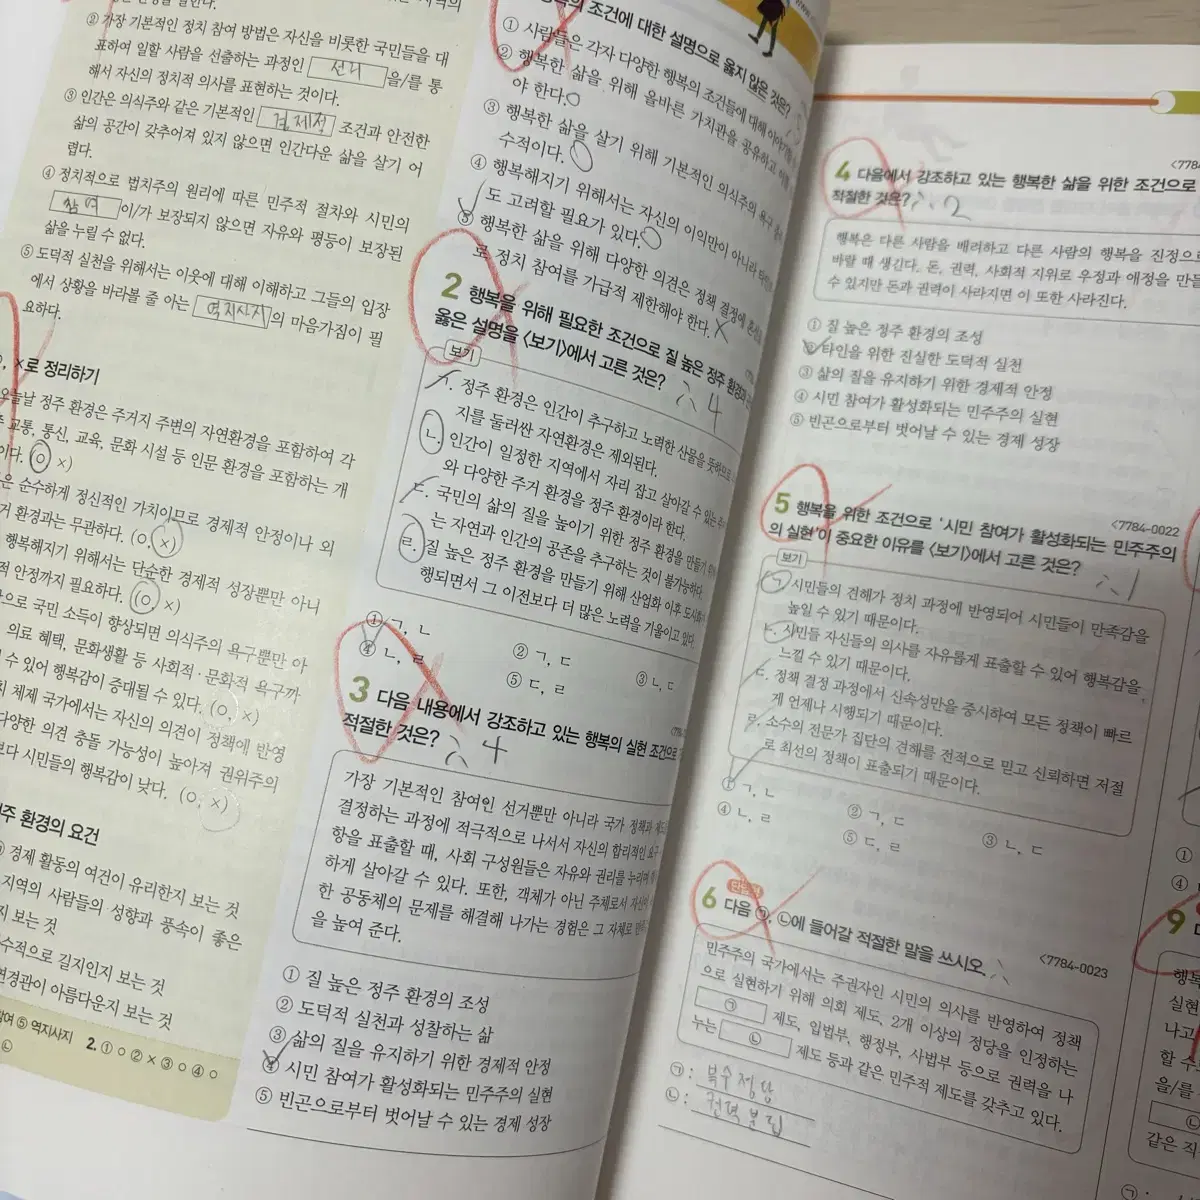 ② 가장 기본적인 정치 참여 방법은 자신을 비롯한 국민들을 대
표하여 일할 사람을 선출하는 과정인 선거 을/를 통
해서 자신의 정치적 의사를 표현하는 것이다.
③ 인간은 의식주와 같은 기본적인 경제적 조건과 안전한
삶의 공간이 갖추어져 있지 않으면 인간다운 삶을 살기 어
렵다.
④ 정치적으로 법치주의 원리에 따른 민주적 절차와 시민의
참여 이/가 보장되지 않으면 자유와 평등이 보장된
삶을 누릴 수 없다.
⑤ 도덕적 실천을 위해서는 이웃에 대해 이해하고 그들의 입장
에서 상황을 바라볼 줄 아는 역지사지 의 마음가짐이 필
요하다.
×로 정리하기
오늘날 정주 환경은 주거지 주변의 자연환경을 포함하여 각
교통, 통신, 교육, 문화 시설 등 인문 환경을 포함하는 개
(○, ×)
은 순수하게 정신적인 가치이므로 경제적 안정이나 외
환경과는 무관하다. (○, ×)
행복해지기 위해서는 단순한 경제적 성장뿐만 아니
안정까지 필요하다. (○, ×)
으로 국민 소득이 향상되면 의식주의 욕구뿐만 아
의료 혜택, 문화생활 등 사회적·문화적 욕구까
수 있어 행복감이 증대될 수 있다. (○, ×)
체제 국가에서는 자신의 의견이 정책에 반영
다양한 의견 충돌 가능성이 높아져 권위주의
보다 시민들의 행복감이 낮다. (○, ×)
환경의 요건
경제 활동의 여건이 유리한지 보는 것
지역의 사람들의 성향과 풍속이 좋은
보는 것
길지인지 보는 것
아름다운지 보는 것
⑤ 역지사지 2. ① ○ ② × ③ ○ ④ ○
조건에 대한 설명으로 옳지 않은 것은?
① 사람들은 각자 다양한 행복의 조건들에 대해
② 행복한 삶을 위해 올바른 가치관을 공유하고
야 한다.
③ 행복한 삶을 살기 위해 기본적인 의식주의 욕구
수적이다.
④ 행복해지기 위해서는 자신의 이익만이 아니라
도 고려할 필요가 있다.
⑤ 행복한 삶을 위해 다양한 의견은 정책 결정에
로 정치 참여를 가급적 제한해야 한다.
2 행복을 위해 필요한 조건으로 질 높은 정주 환경과
옳은 설명을 〈보기〉에서 고른 것은? ∴ 4
보기
ㄱ. 정주 환경은 인간이 추구하고 노력한 산물을 뜻하므로
지를 둘러싼 자연환경은 제외된다.
ㄴ. 인간이 일정한 지역에서 자리 잡고 살아갈 수 있는
와 다양한 주거 환경을 정주 환경이라 한다.
ㄷ. 국민의 삶의 질을 높이기 위한 정주 환경을 만들기
는 자연과 인간의 공존을 추구하는 것이 불가능하다.
ㄹ. 질 높은 정주 환경을 만들기 위해 산업화 이후
행되면서 그 이전보다 더 많은 노력을 기울이고 있다.
① ㄱ, ㄴ
② ㄱ, ㄷ
③ ㄴ, ㄷ
④ ㄴ, ㄹ
⑤ ㄷ, ㄹ
3 다음 내용에서 강조하고 있는 행복의 실현 조건으로
적절한 것은? ∴ 4
가장 기본적인 참여인 선거뿐만 아니라 국가 정책과
결정하는 과정에 적극적으로 나서서 자신의 합리적인
항을 표출할 때, 사회 구성원들은 자유와 권리를 누리며
하게 살아갈 수 있다. 또한, 객체가 아닌 주체로서
한 공동체의 문제를 해결해 나가는 경험은 그 자체로
을 높여 준다.
① 질 높은 정주 환경의 조성
② 도덕적 실천과 성찰하는 삶
③ 삶의 질을 유지하기 위한 경제적 안정
④ 시민 참여가 활성화되는 민주주의 실현
⑤ 빈곤으로부터 벗어날 수 있는 경제 성장
4 다음에서 강조하고 있는 행복한 삶을 위한 조건으로
적절한 것은? ∴ 2
행복은 다른 사람을 배려하고 다른 사람의 행복을 진정으로
바랄 때 생긴다. 돈, 권력, 사회적 지위로 우정과 애정을 만들
수 있지만 돈과 권력이 사라지면 이 또한 사라진다.
① 질 높은 정주 환경의 조성
② 타인을 위한 진실한 도덕적 실천
③ 삶의 질을 유지하기 위한 경제적 안정
④ 시민 참여가 활성화되는 민주주의 실현
⑤ 빈곤으로부터 벗어날 수 있는 경제 성장
<7784-0022
5 행복을 위한 조건으로 '시민 참여가 활성화되는 민주주의
의 실현'이 중요한 이유를 〈보기〉에서 고른 것은? ∴ 1
보기
ㄱ. 시민들의 견해가 정치 과정에 반영되어 시민들이 만족감을
높일 수 있기 때문이다.
ㄴ. 시민들 자신들의 의사를 자유롭게 표출할 수 있어 행복감을
느낄 수 있기 때문이다.
ㄷ. 정책 결정 과정에서 신속성만을 중시하여 모든 정책이 빠르
게 언제나 시행되기 때문이다.
ㄹ. 소수의 전문가 집단의 견해를 전적으로 믿고 신뢰하면 저절
로 최선의 정책이 표출되기 때문이다.
① ㄱ, ㄴ
② ㄱ, ㄷ
③ ㄴ, ㄷ
④ ㄴ, ㄹ
⑤ ㄷ, ㄹ
단답형
6 다음 ㉠, ㉡에 들어갈 적절한 말을 쓰시오.
<7784-0023
민주주의 국가에서는 주권자인 시민의 의사를 반영하여 정책
으로 실현하기 위해 의회 제도, 2개 이상의 정당을 인정하는
㉠ 제도, 입법부, 행정부, 사법부 등으로 권력을 나
누는 ㉡ 제도 등과 같은 민주적 제도를 갖추고 있다.
㉠ : 복수정당
㉡ : 권력분립
9
행복
실현
나고
할 수
을/를
㉡
같은